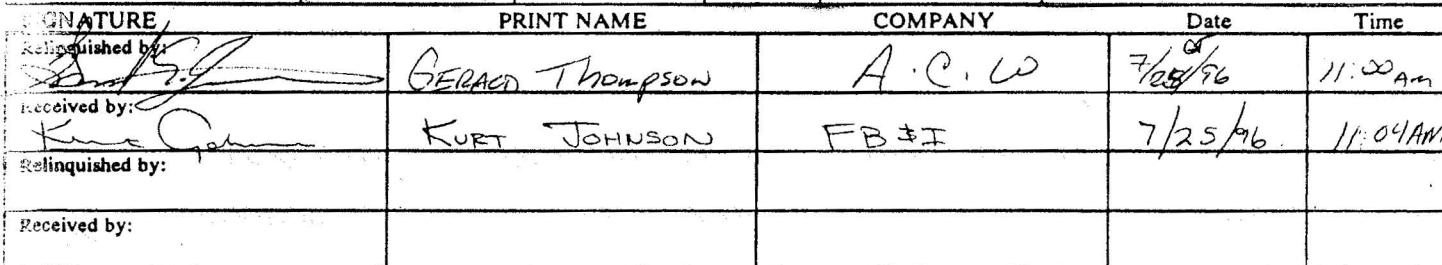 SIGNATURE PRINT NAME COMPANY Date Time
Relinquished by:
GERALD Thompson A.C.W 7/25/96 11:00 AM
Received by:
Kurt Johnson KURT JOHNSON FB&I 7/25/96 11:04 AM
Relinquished by:
Received by: